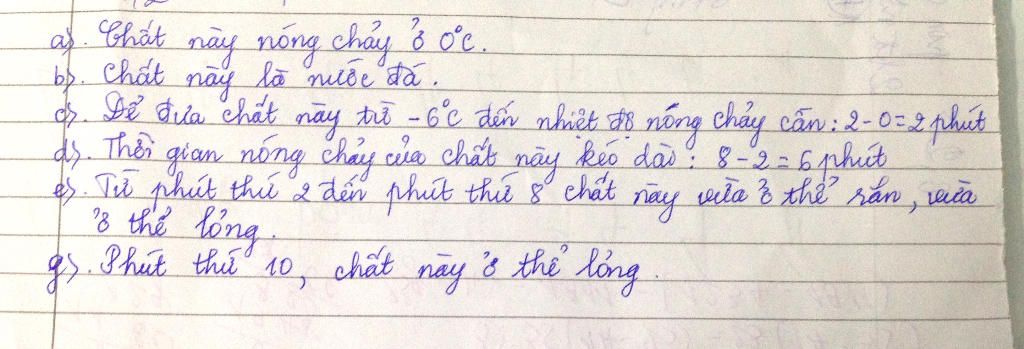 a). Chất này nóng chảy ở 0°C.
b). Chất này là nước đá.
c). Để đưa chất này từ -6°C đến nhiệt độ nóng chảy cần: 2-0=2 phút
d). Thời gian nóng chảy của chất này kéo dài: 8-2=6 phút
e). Từ phút thứ 2 đến phút thứ 8 chất này vừa ở thể rắn, vừa
ở thể lỏng.
g). Phút thứ 10, chất này ở thể lỏng.